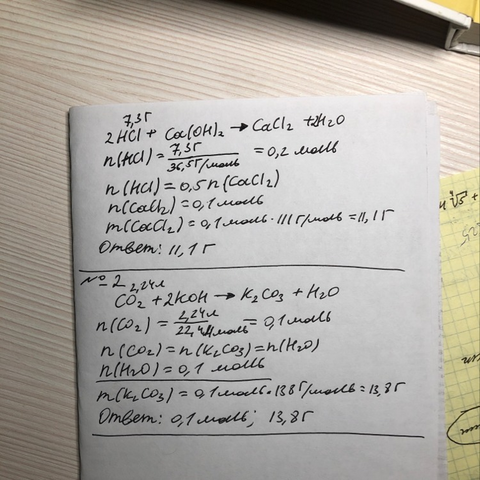 7,3г
2HCl + Ca(OH)₂ → CaCl₂ + 2H₂O
n(HCl) = 7,3г / 36,5г/моль = 0,2 моль
n(HCl) = 0,5n(CaCl₂)
n(CaCl₂) = 0,1 моль
m(CaCl₂) = 0,1 моль · 111г/моль = 11,1г
Ответ: 11,1г
№2
2,24л
CO₂ + 2KOH → K₂CO₃ + H₂O
n(CO₂) = 2,24л / 22,4л/моль = 0,1 моль
n(CO₂) = n(K₂CO₃) = n(H₂O)
n(H₂O) = 0,1 моль
m(K₂CO₃) = 0,1 моль · 138г/моль = 13,8г
Ответ: 0,1 моль; 13,8г